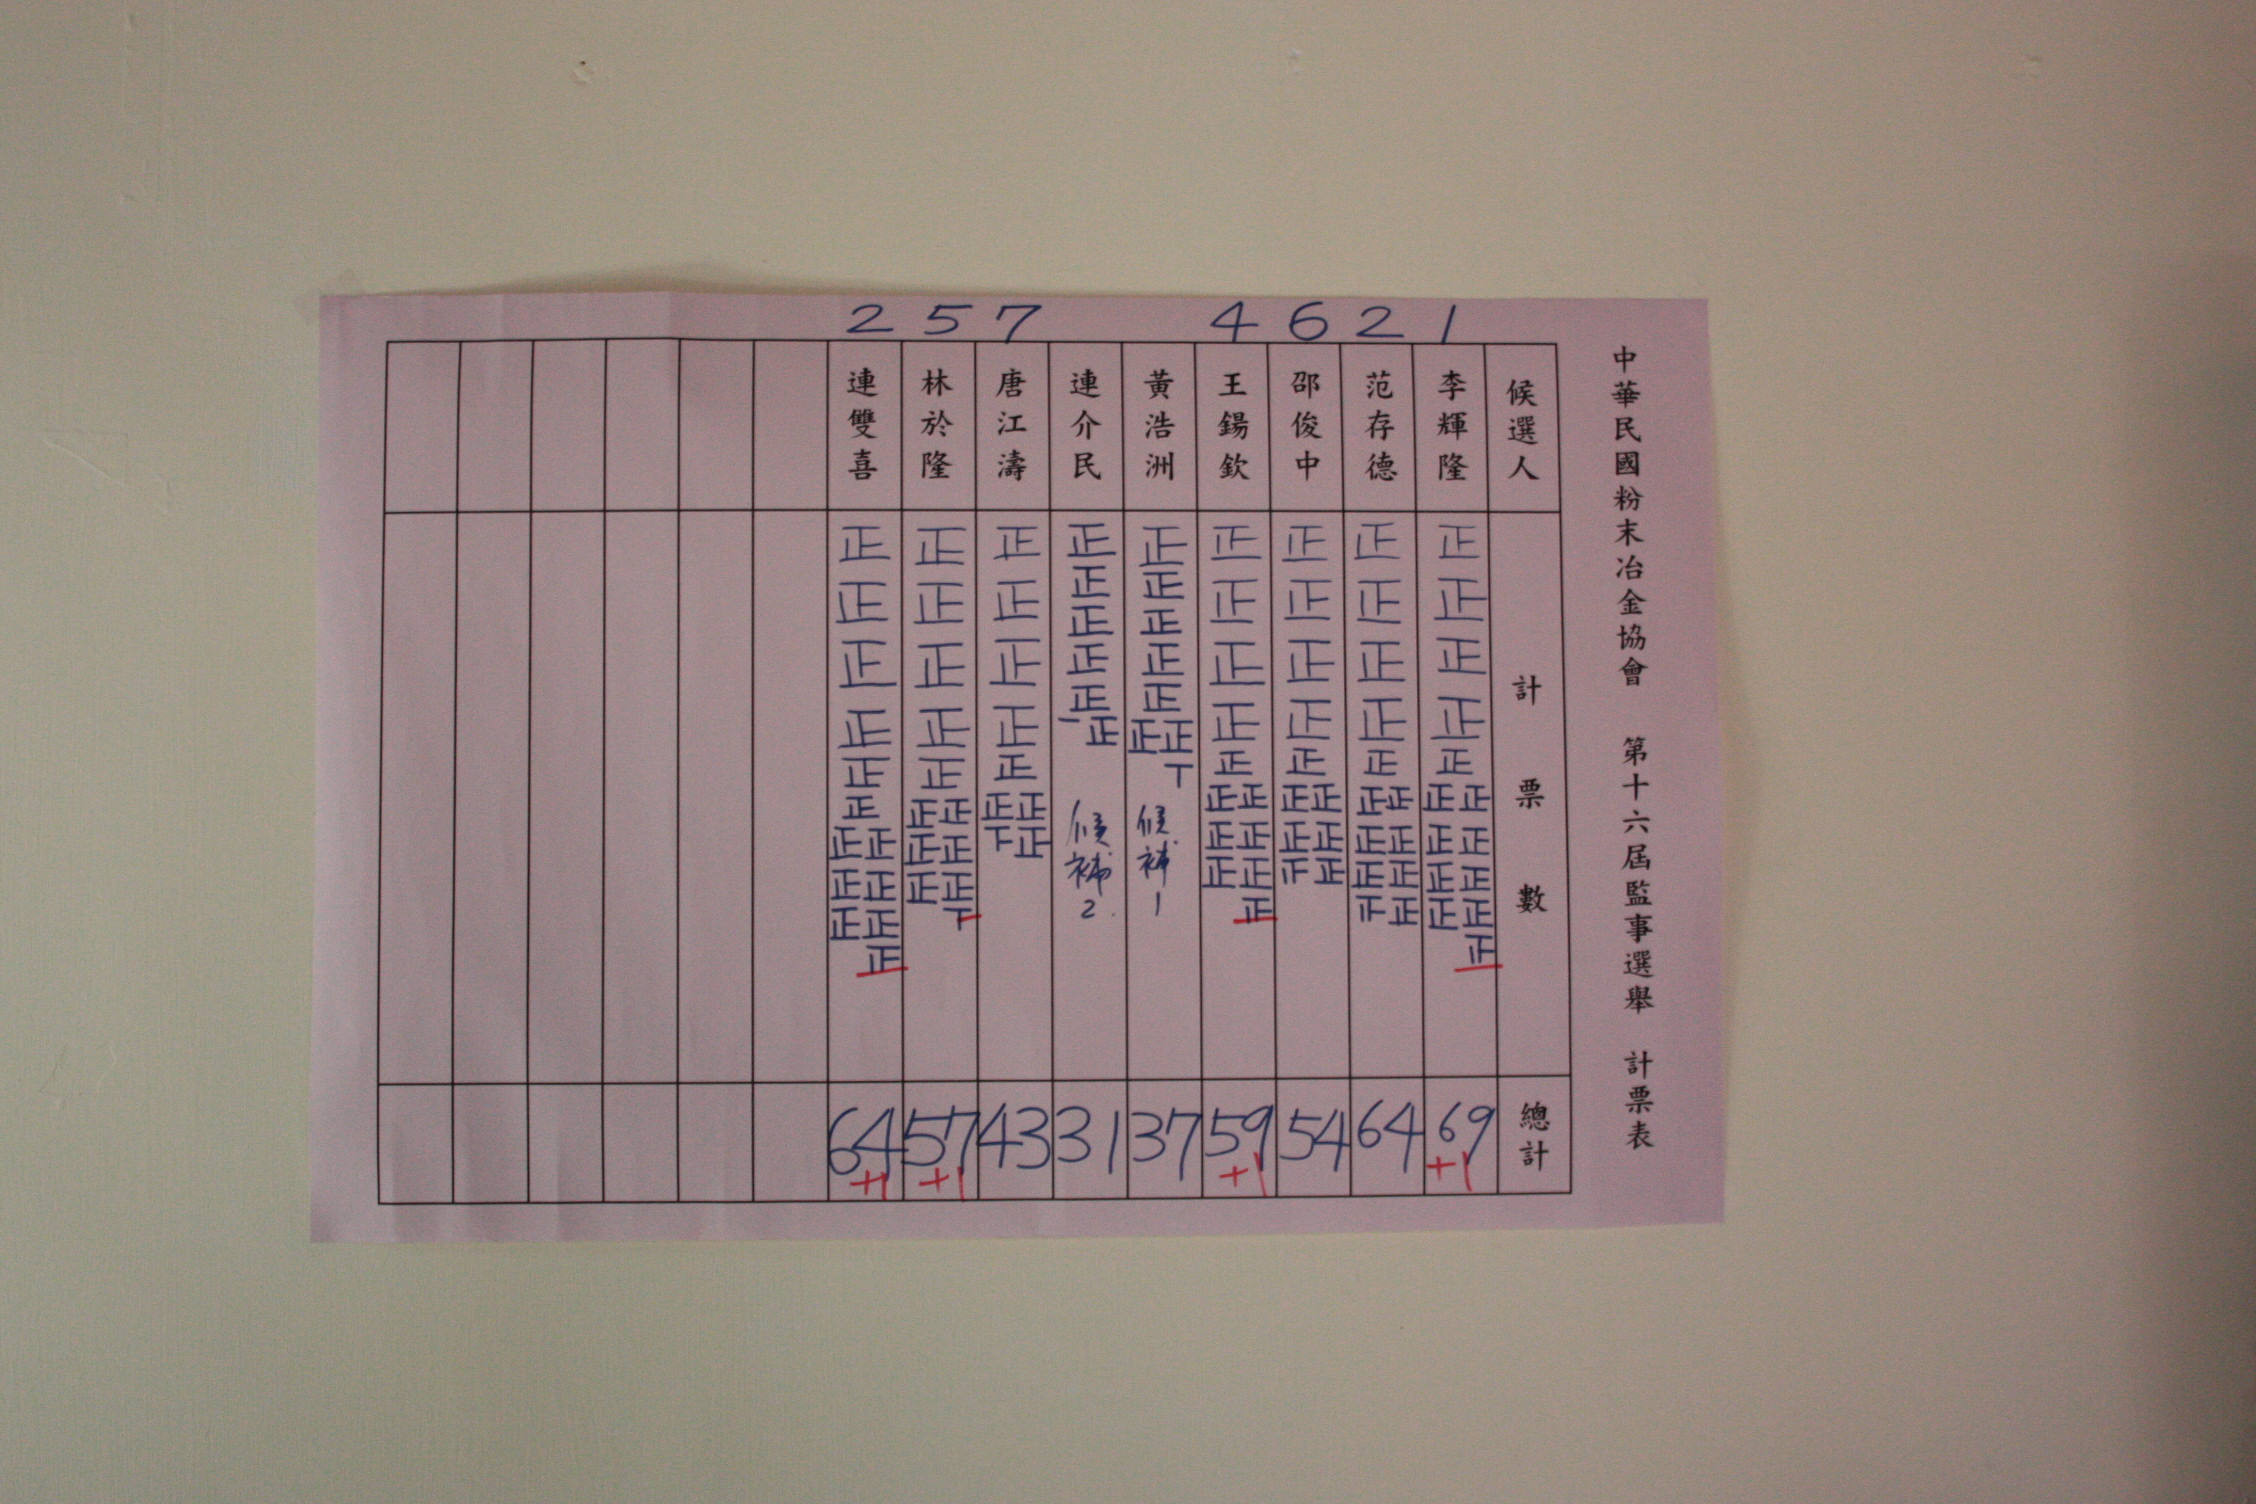 中華民國粉末冶金協會 第十六屆監事選舉 計票表
候選人 計票數 總計
1 李輝隆 正正正正正正正正正正正正正正 69 +1
2 范存德 正正正正正正正正正正正正 64
6 邵俊中 正正正正正正正正正正 54
4 王鍚欽 正正正正正正正正正正正正 59 +1
黃浩洲 正正正正正正正丅 候補1 37
連介民 正正正正正正一 候補2 31
7 唐江濤 正正正正正正正正 43
5 林於隆 正正正正正正正正正正正 57 +1
2 連雙喜 正正正正正正正正正正正正正 64 +1